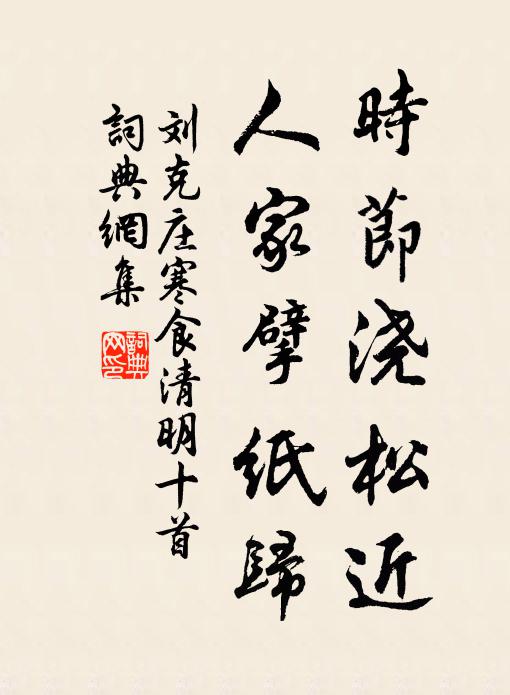 時節浇松近
人家擘纸歸
刘克庄寒食清明十首
詞典網集
詞典网印